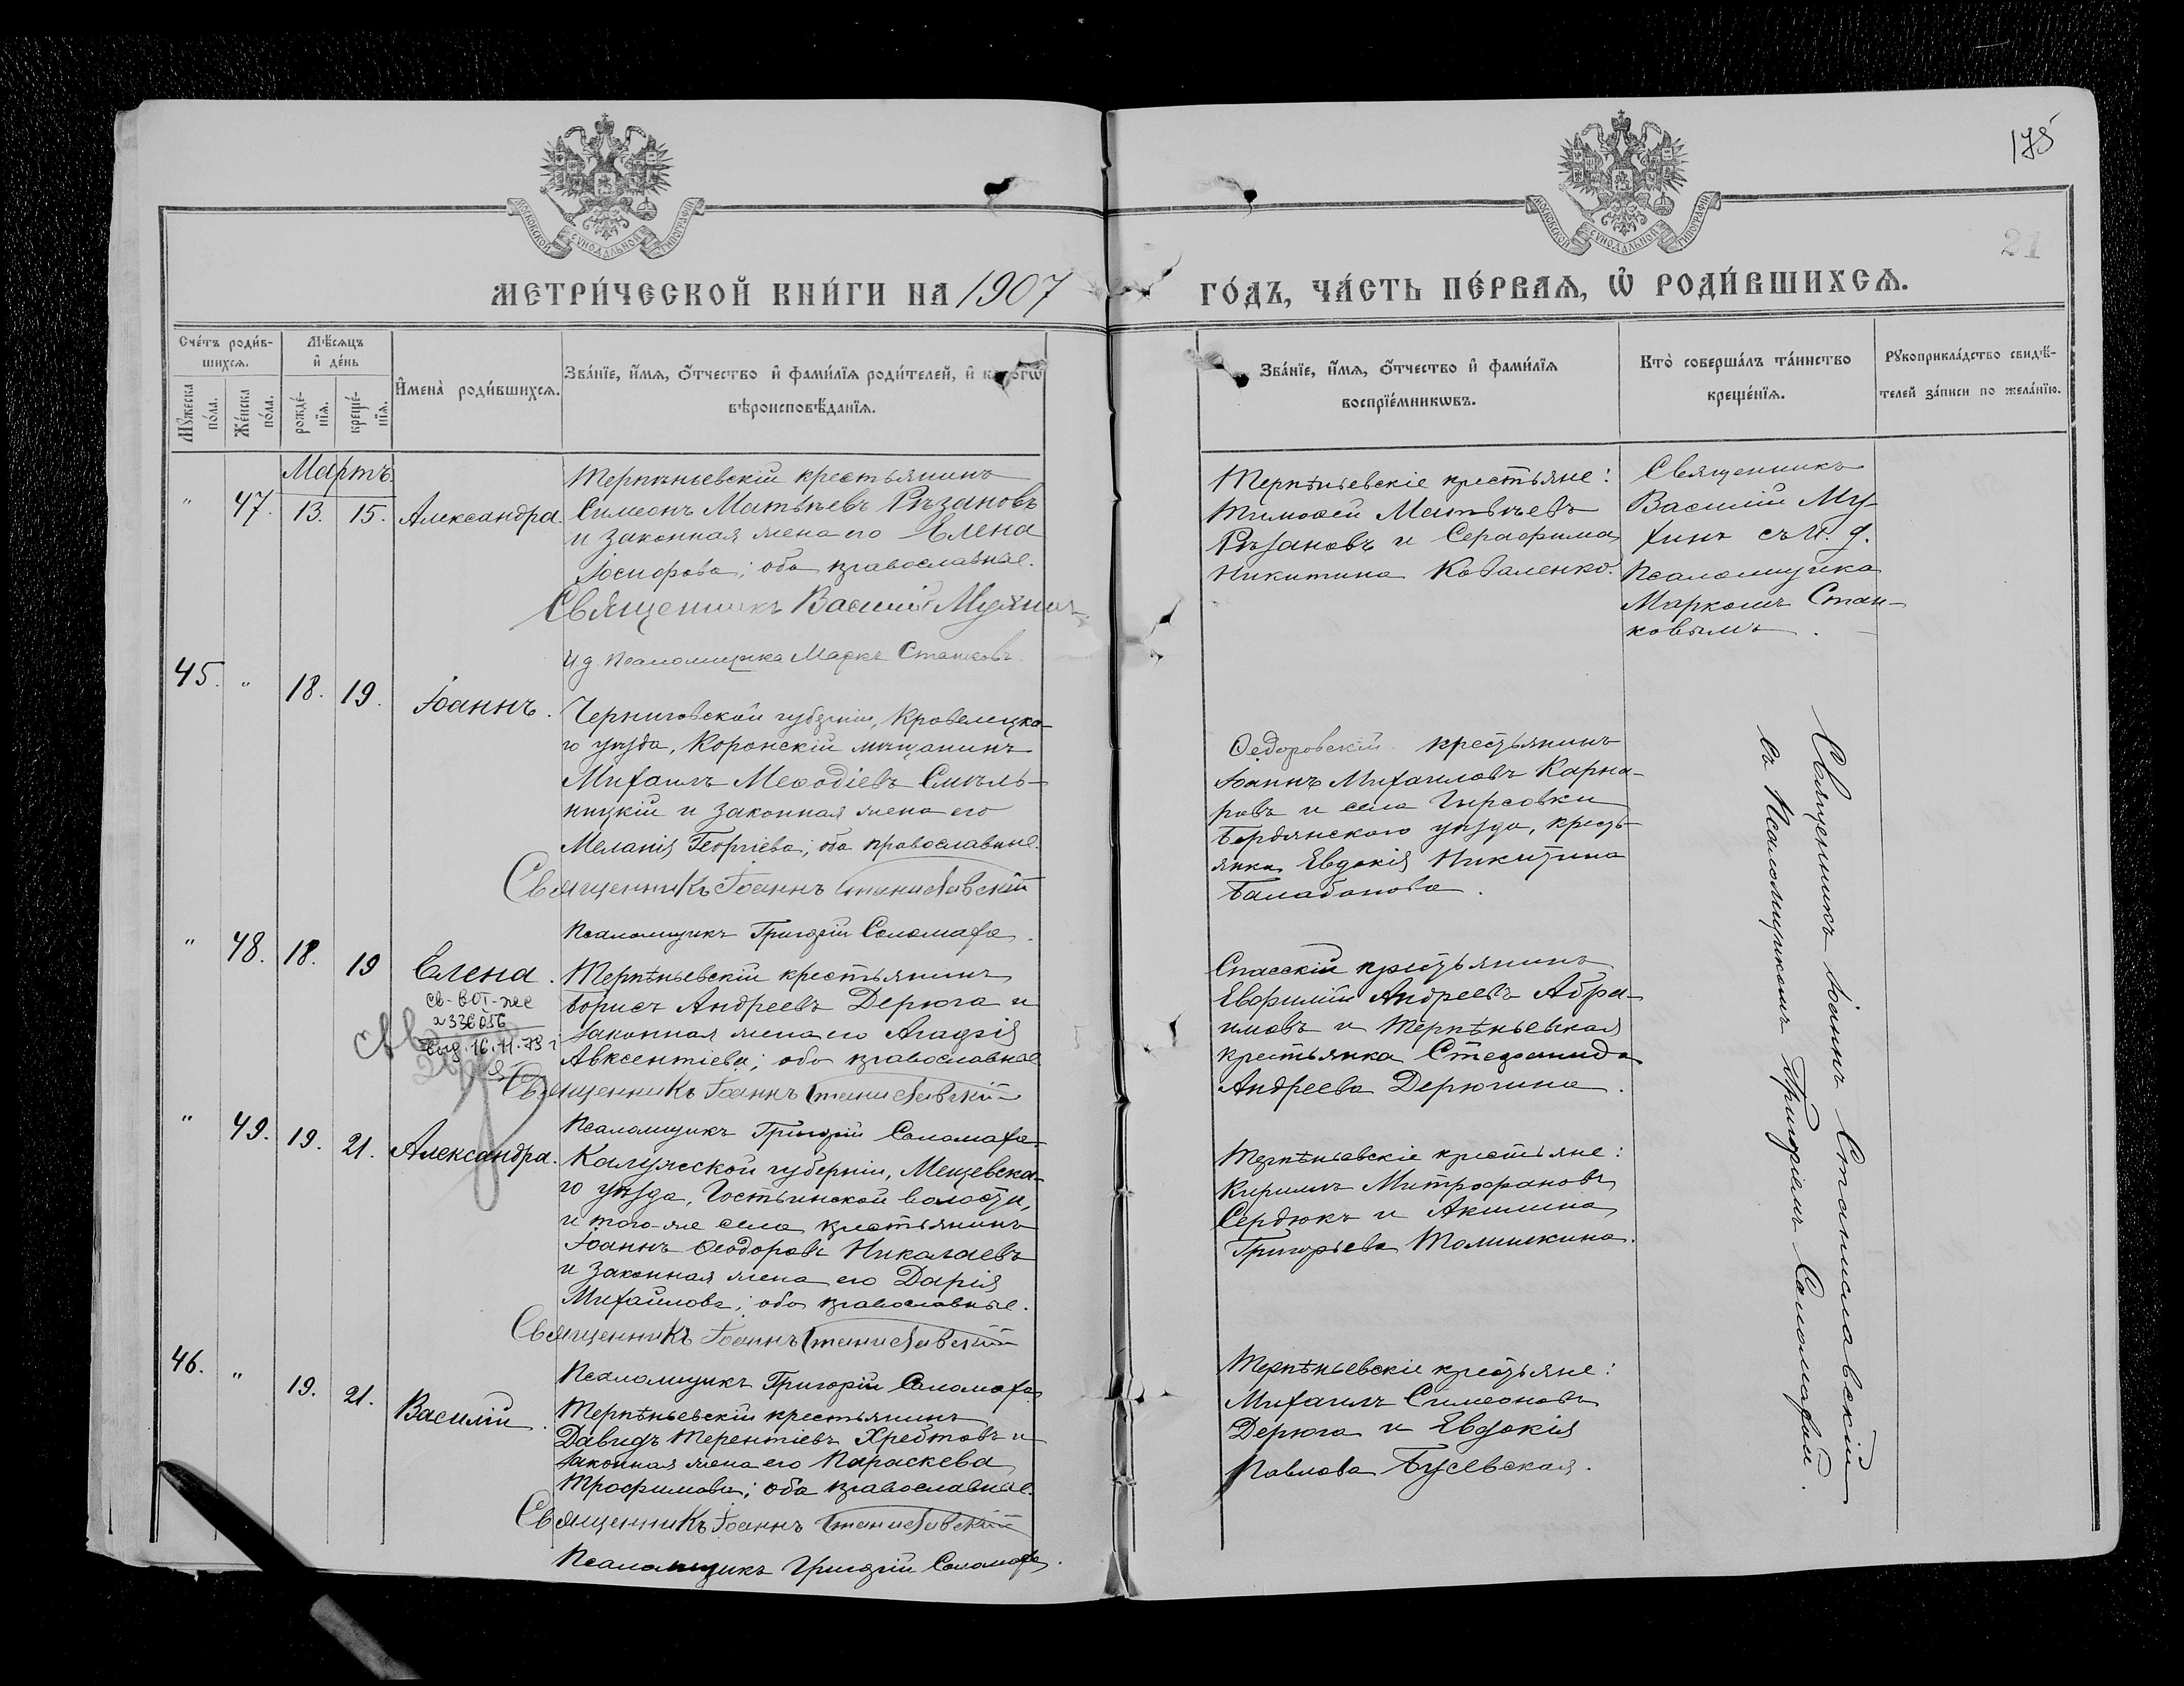 175
21
МОСКОВСКОЙ СѴНОДАЛЬНОЙ ТИПОГРАФІИ
МОСКОВСКОЙ СѴНОДАЛЬНОЙ ТИПОГРАФІИ
МЕТРИ́ЧЕСКОЙ КНИ́ГИ НА 1907 ГО́ДЪ, ЧА́СТЬ ПЕ́РВАѦ, Ѡ҆ РОДИ́ВШИХСѦ.
Сче́тъ роди́в-
шихсѧ.
Мꙋ́жеска по́ла.
Же́нска по́ла.
Мѣ́сѧцъ
и҆ де́нь
рожде́-нїѧ.
креще́-нїѧ.
И҆мена̀ роди́вшихсѧ.
Зва́нїе, и҆́мѧ, ѻ҆́тчество и҆ фами́лїѧ роди́телей, и҆ како́гѡ
вѣроисповѣ́данїѧ.
Зва́нїе, и҆́мѧ, ѻ҆́тчество и҆ фами́лїѧ
воспрїе́мникѡвъ.
Кто̀ соверша́лъ та́инство
креще́нїѧ.
Рꙋкоприкла́дство свидѣ́-
телей за́писи по жела́нїю.
Мартъ
" 47. 13. 15. Александра.
Терпѣньевскій крестьянинъ
Симеонъ Матѳѣевъ Рѣзановъ
и законная жена его Елена
Іосифова; оба православные.
Священникъ Василій Мухинъ
И д. псаломщика Маркъ Станковъ.
Терпѣньевскіе крестьяне:
Тимоѳей Матѳѣевъ
Рѣзановъ и Серафима
Никитина Коваленко.
Священникъ
Василій Му-
хинъ съ И. д.
псаломщика
Маркомъ Стан-
ковымъ.
45. " 18. 19. Іоаннъ.
Черниговской губерніи, Кролевецка-
го уѣзда, Коропскій мѣщанинъ
Михаилъ Меѳодіевъ Смѣль-
ницкій и законная жена его
Меланія Георгіева; оба православные.
Священникъ Іоаннъ Станиславскій
Псаломщикъ Григорій Саломаха.
Ѳедоровскій крестьянинъ
Іоаннъ Михаиловъ Карна-
ровъ и села Гирсовки
Бердянскаго уѣзда, кресть-
янка Евдокія Никитина
Балабанова.
Священникъ Іоаннъ Станиславскій
съ Псаломщикомъ Григоріемъ Саломахой.
" 48. 18. 19 Елена.
Терпѣньевскій крестьянинъ
Борисъ Андреевъ Дерюга и
законная жена его Агафія
Авксентіева; оба православные
Священникъ Іоаннъ Станиславскій
Псаломщикъ Григорій Саломаха.
336056
16.11.73 г
Спасскій крестьянинъ
Евфимій Андреевъ Абра-
имовъ и Терпѣньевская
крестьянка Стефанида
Андреева Дерюгина.
" 49. 19. 21. Александра.
Калужской губерніи, Мещевска-
го уѣзда, Гостьинской волости,
и того-же села крестьянинъ
Іоаннъ Ѳеодоровъ Николаевъ
и законная жена его Дарія
Михайлова; оба православные.
Священникъ Іоаннъ Станиславскій
Псаломщикъ Григорій Саломаха
Терпѣньевскіе крестьяне:
Кириллъ Митрофановъ
Сердюкъ и Акилина
Григорьева Толмилкина.
46. " 19. 21. Василій.
Терпѣньевскій крестьянинъ
Давидъ Терентіевъ Хребтовъ и
законная жена его Параскева
Трофимова; оба православные.
Священникъ Іоаннъ Станиславскій
Псаломщикъ Григорій Саломаха.
Терпѣньевскіе крестьяне:
Михаилъ Симеоновъ
Дерюга и Евдокія
Павлова Бусевская.